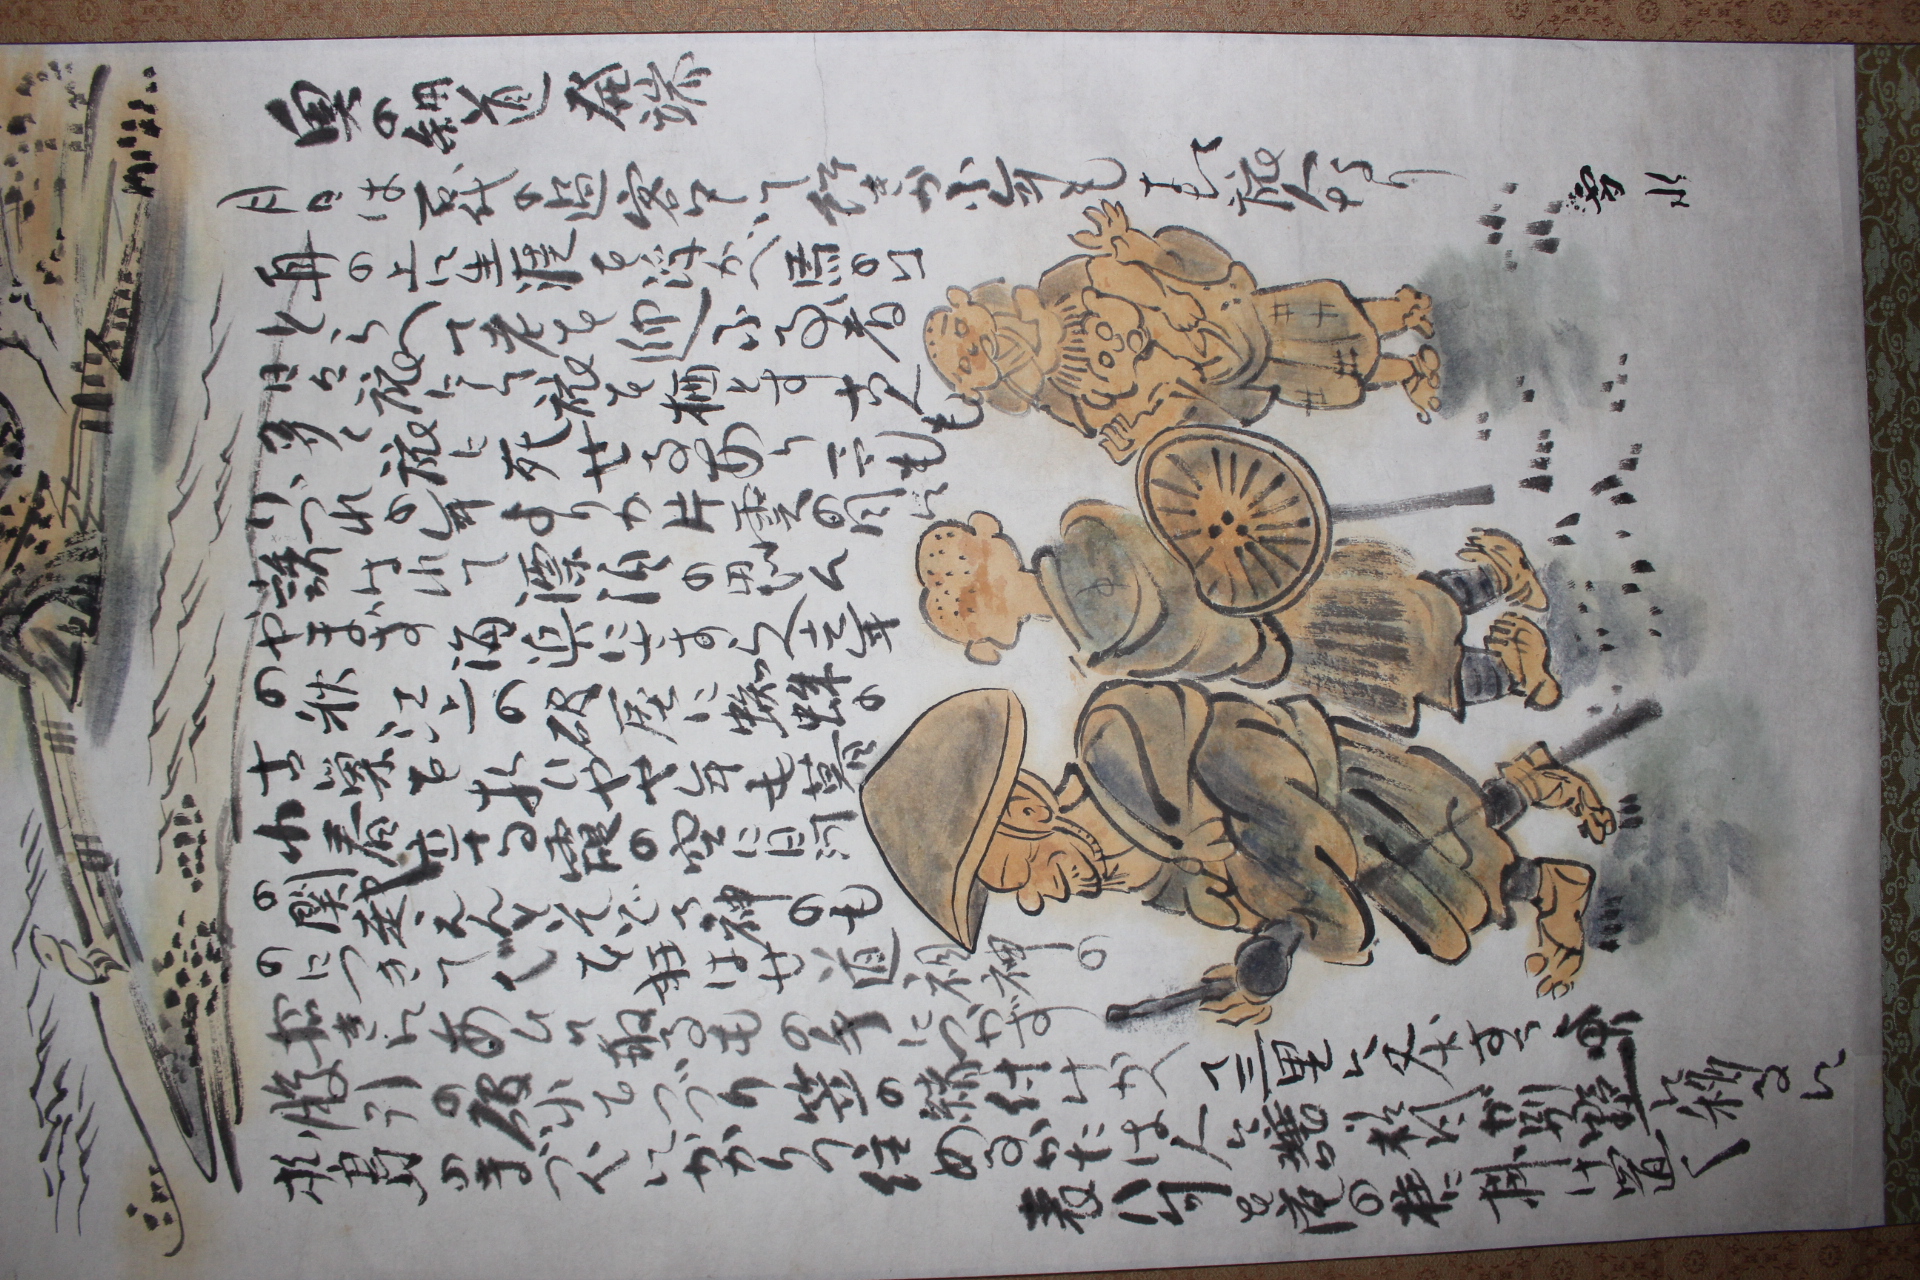 奥の細道 発端
月日は百代の過客にして行きかふ年もまた旅人なり
舟の上に生涯を浮かべ馬の口
とらへて老を迎ふる者
日々旅にして旅を栖とす 古人も
多く旅に死せるあり 予も
いづれの年よりか片雲の風に
誘はれて漂泊の思ひ
やまず海浜にさすらへ去年
の秋 江上の破屋に蜘蛛の
古巣を払ひやや年も暮
れ 春立てる霞の空に白河
の関越えんとそぞろ神のも
のにつきて心を狂はせ 道祖神の
招きにあひて取るもの手につかず
股引の破れをつづり笠の緒付けかへて三里に灸すうる
松島の月まづ心にかかりて 住めるかたは人に譲り 杉風が別墅に移るに
表八句を庵の柱に掛け置く
雪水